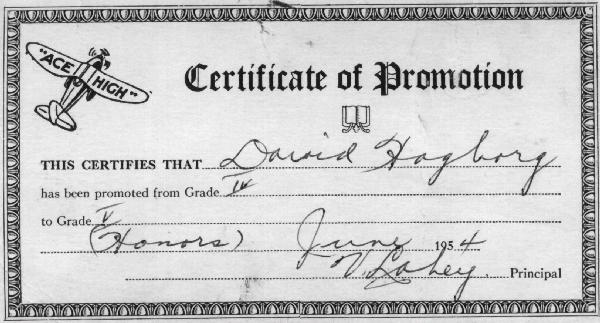 "ACE HIGH"
Certificate of Promotion
THIS CERTIFIES THAT David Hagborg
has been promoted from Grade IV
to Grade V
(Honors) June 1954
V. Lahey Principal